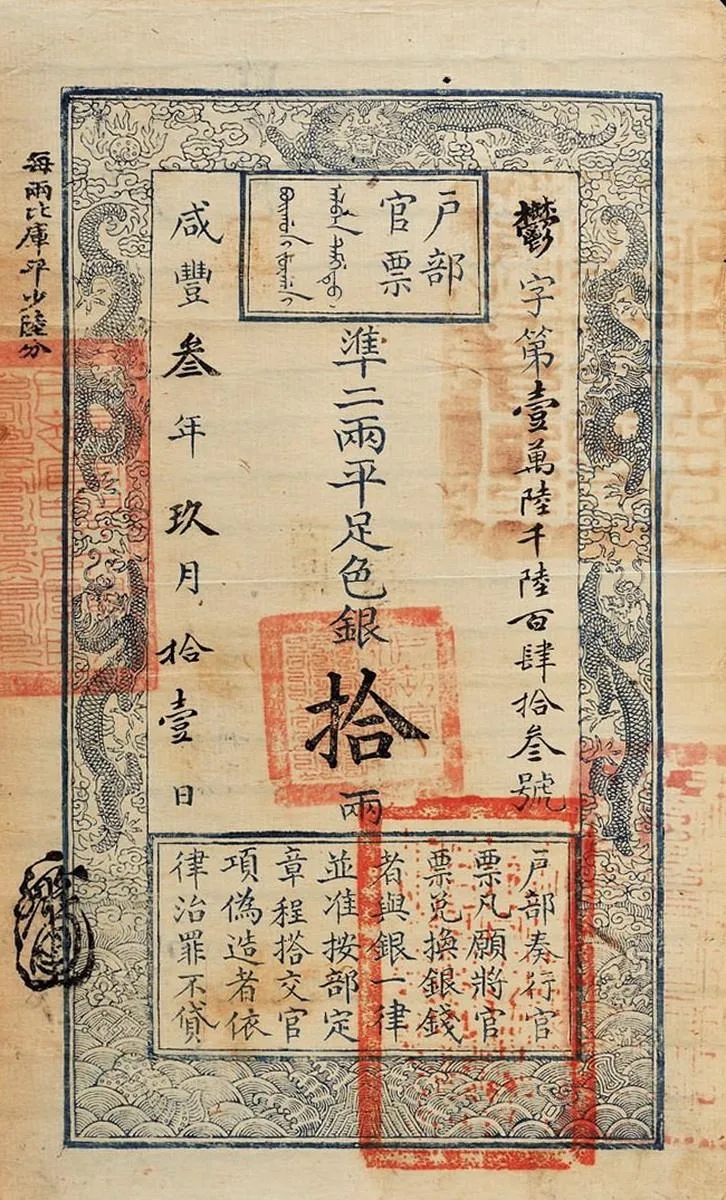 戶部
官票
鬱字第壹萬陸千陸百肆拾叁號
準二兩平足色銀拾兩
咸豐叁年玖月拾壹日
戶部奏行官
票凡願將官
票兌換銀錢
者與銀一律
並准按部定
章程搭交官
項偽造者依
律治罪不貸
每兩比庫平少陸分